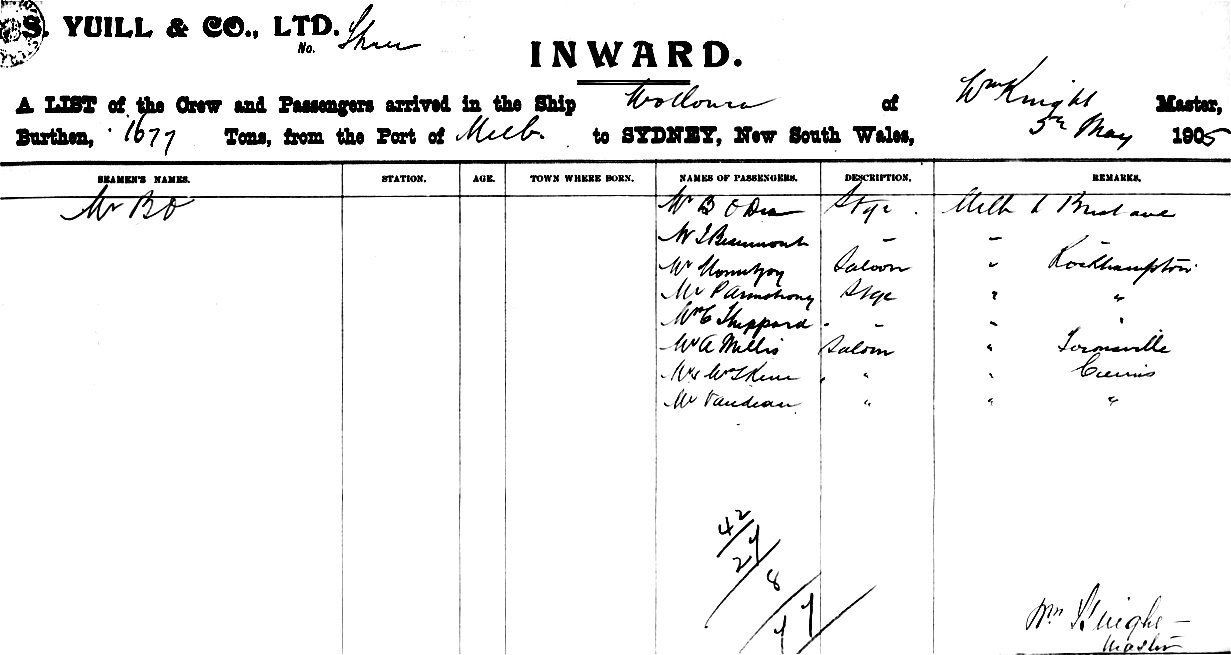 S. YUILL & CO., LTD.
No. Three
INWARD.
A LIST of the Crew and Passengers arrived in the Ship Wollowra of Wm Knight Master,
Burthen, 1677 Tons, from the Port of Melb. to SYDNEY, New South Wales, 5th May 1905
SEAMEN'S NAMES. STATION. AGE. TOWN WHERE BORN. NAMES OF PASSENGERS. DESCRIPTION. REMARKS.
Mr B O Mr B O Dea Stge. Melb to Brisbane
Mr J Beaumont " " "
Mr Saloon " Rockhampton
Mr P Armstrong Stge " "
Mr C Sheppard " " "
Mr A Millis Saloon " Townsville
" " Cairns
Mr " " "
42
27
8
77
Wm Knight
Master